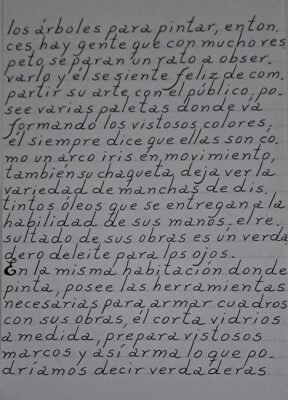 los árboles para pintar, enton.
ces, hay gente que con mucho res
peto se paran un rato a obser.
varlo y él se siente feliz de com.
partir su arte, con el público, po-
see varias paletas donde va
formando los vistosos colores,
él siempre dice que ellas son có.
mo un arco iris en movimiento,
también su chaqueta, deja ver la
variedad de manchas de dis.
tintos óleos que se entregan a la
habilidad de sus manos. el re.
sultado de sus obras es un verda
dero deleite para los ojos.
En la misma habitación donde
pinta, posee las herramientas
necesarias para armar cuadros
con sus obras, él corta vidrios
a medida, prepara vistosos
marcos y así arma lo que po-
dríamos decir verdaderas